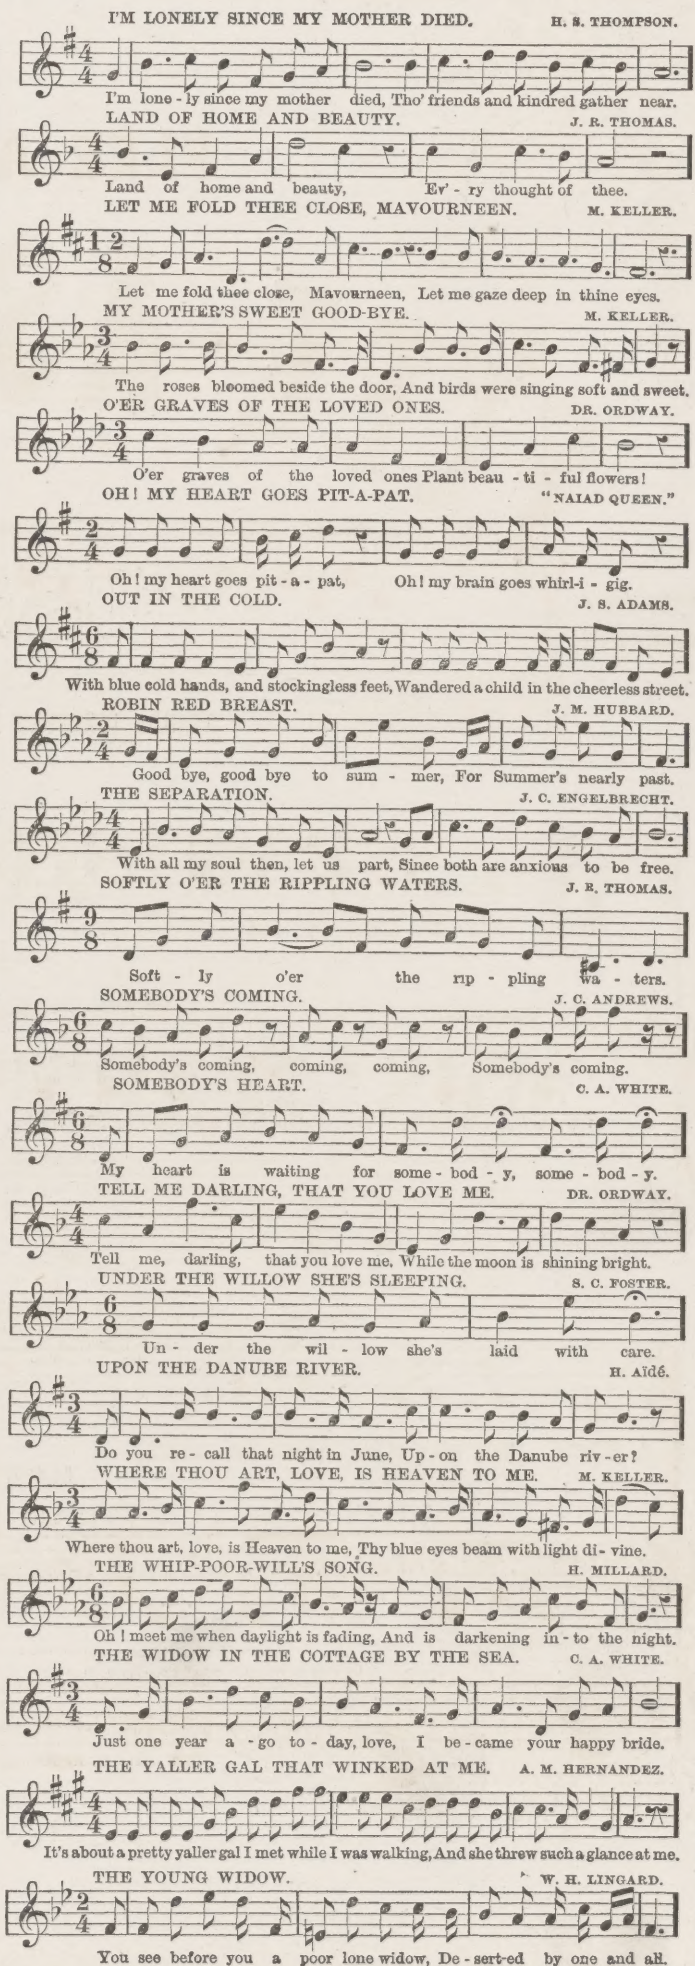 I'M LONELY SINCE MY MOTHER DIED. H. S. THOMPSON.
I'm lone - ly since my mother died, Tho' friends and kindred gather near.
LAND OF HOME AND BEAUTY. J. R. THOMAS.
Land of home and beauty, Ev' - ry thought of thee.
LET ME FOLD THEE CLOSE, MAVOURNEEN. M. KELLER.
Let me fold thee close, Mavourneen, Let me gaze deep in thine eyes.
MY MOTHER'S SWEET GOOD-BYE. M. KELLER.
The roses bloomed beside the door, And birds were singing soft and sweet.
O'ER GRAVES OF THE LOVED ONES. DR. ORDWAY.
O'er graves of the loved ones Plant beau - ti - ful flowers!
OH! MY HEART GOES PIT-A-PAT. "NAIAD QUEEN."
Oh! my heart goes pit - a - pat, Oh! my brain goes whirl-i - gig.
OUT IN THE COLD. J. S. ADAMS.
With blue cold hands, and stockingless feet, Wandered a child in the cheerless street.
ROBIN RED BREAST. J. M. HUBBARD.
Good bye, good bye to sum - mer, For Summer's nearly past.
THE SEPARATION. J. C. ENGELBRECHT.
With all my soul then, let us part, Since both are anxious to be free.
SOFTLY O'ER THE RIPPLING WATERS. J. R. THOMAS.
Soft - ly o'er the rip - pling wa - ters.
SOMEBODY'S COMING. J. C. ANDREWS.
Somebody's coming, coming, coming, Somebody's coming.
SOMEBODY'S HEART. C. A. WHITE.
My heart is waiting for some - bod - y, some - bod - y.
TELL ME DARLING, THAT YOU LOVE ME. DR. ORDWAY.
Tell me, darling, that you love me, While the moon is shining bright.
UNDER THE WILLOW SHE'S SLEEPING. S. C. FOSTER.
Un - der the wil - low she's laid with care.
UPON THE DANUBE RIVER. H. Aïdé.
Do you re - call that night in June, Up - on the Danube riv - er?
WHERE THOU ART, LOVE, IS HEAVEN TO ME. M. KELLER.
Where thou art, love, is Heaven to me, Thy blue eyes beam with light di - vine.
THE WHIP-POOR-WILL'S SONG. H. MILLARD.
Oh! meet me when daylight is fading, And is darkening in - to the night.
THE WIDOW IN THE COTTAGE BY THE SEA. C. A. WHITE.
Just one year a - go to - day, love, I be - came your happy bride.
THE YALLER GAL THAT WINKED AT ME. A. M. HERNANDEZ.
It's about a pretty yaller gal I met while I was walking, And she threw such a glance at me.
THE YOUNG WIDOW. W. H. LINGARD.
You see before you a poor lone widow, De - sert-ed by one and all.